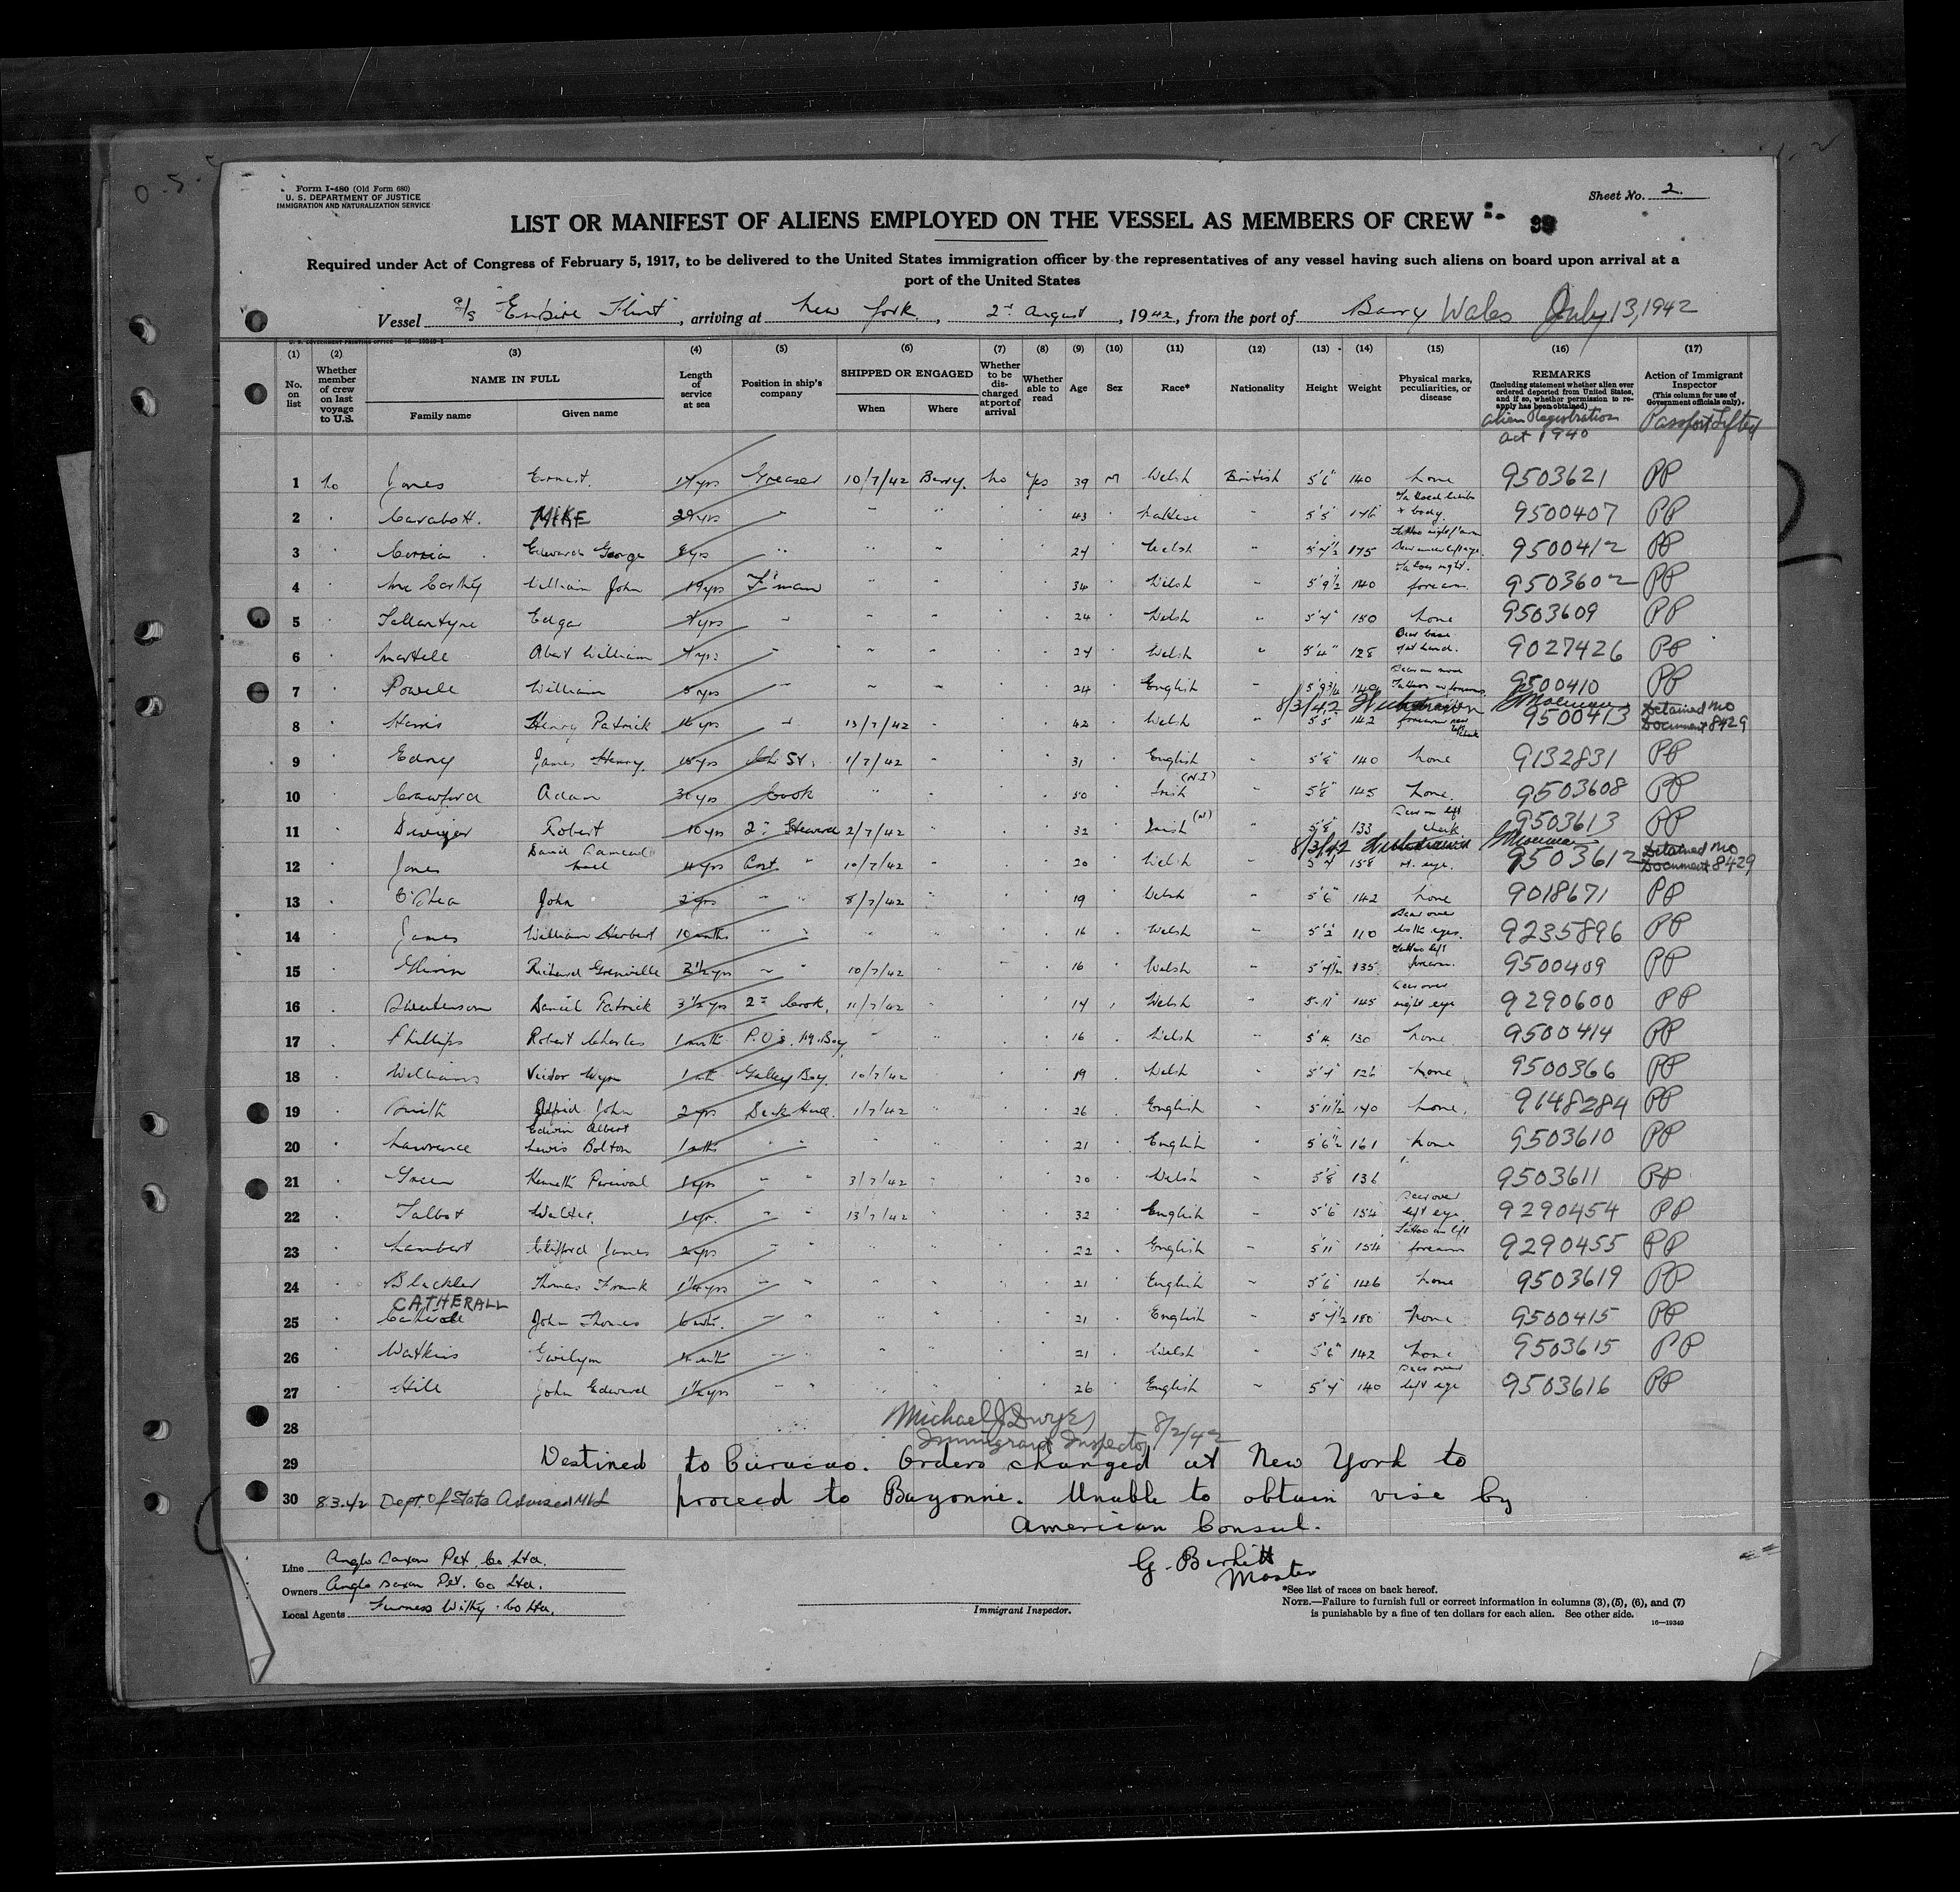 Form I-480 (Old Form 680)
U. S. DEPARTMENT OF JUSTICE
IMMIGRATION AND NATURALIZATION SERVICE
Sheet No. 2.
LIST OR MANIFEST OF ALIENS EMPLOYED ON THE VESSEL AS MEMBERS OF CREW
Required under Act of Congress of February 5, 1917, to be delivered to the United States immigration officer by the representatives of any vessel having such aliens on board upon arrival at a
port of the United States
Vessel s/s "Empire Flint", arriving at New York, 2nd August, 1942, from the port of Barry Wales July 13, 1942
(1) No. on list (2) Whether member of crew on last voyage to U.S. (3) NAME IN FULL Family name Given name (4) Length of service at sea (5) Position in ship's company (6) SHIPPED OR ENGAGED When Where (7) Whether to be discharged at port of arrival (8) Whether able to read (9) Age (10) Sex (11) Race* (12) Nationality (13) Height (14) Weight (15) Physical marks, peculiarities, or disease (16) REMARKS (Including statement whether alien ever ordered deported from United States, and if so, whether permission to re-apply has been obtained) Alien Registration Act 1940 (17) Action of Immigrant Inspector (This column for use of Government officials only). Passport Lifted
1 No Jones Ernest. 14 yrs Greaser 10/7/42 Barry. No Yes 39 M Welsh British 5'6" 140 None 9503621 PP
2 Carabott. MIKE 29 yrs " " " 43 Maltese " 5'5" 146 & body. 9500407 PP
3 Edward George 9 yrs " " " 24 Welsh " 5'4½ 175 9500412 PP
4 McCarthy William John 19 yrs F'man " " 34 Welsh " 5'9½ 140 forearm. 9503602 PP
5 Tallantyne Edgar 4 yrs " " " 24 Welsh " 5'4" 150 None 9503609 PP
6 Martell Albert William 4 yrs " " " 24 Welsh " 5'4" 128 9027426 PP
7 Powell William 5 yrs " " " 24 English " 5'9¾ 140 9500410 PP
8/3/42 Withdrawn
8 Harris Henry Patrick 16 yrs " 13/7/42 " 42 Welsh " 5'5" 142 9500413 Detained No Document 8429
9 Edney James Henry. 15 yrs Ch. St. 1/7/42 " 31 English " 5'8" 140 None 9132831 PP
10 Crawford Adam 30 yrs Cook " " 50 Irish (N.I) " 145 None. 9503608 PP
11 Robert 10 yrs 2nd Steward 2/7/42 " 32 Irish (N) " 5'8" 133 Scar on left cheek 9503613 PP
8/3/42 Withdrawn
12 Jones David 4 yrs Asst. " 10/7/42 " 20 Welsh " 5'4" 158 9503612 Detained No Document 8429
13 O'Shea John 2 yrs " " 8/7/42 " 19 Welsh " 5'6" 142 None 9018671 PP
14 James William Herbert 10 mths " " " " 16 Welsh " 5'2" 110 Scar over both eyes. 9235896 PP
15 Richard Grenville 2½ yrs " " 10/7/42 " 16 Welsh " 5'4½ 135 Tattoo left forearm. 9500409 PP
16 Daniel Patrick 3½ yrs 2nd Cook. 11/7/42 " 19 Welsh " 5-11" 145 Scar over right eye 9290600 PP
17 Phillips Robert Charles 1 mnth P.O's. Boy " " 16 Welsh 5'4 130 None 9500414 PP
18 Williams Victor Wyn 1 mth Galley Boy. 10/7/42 19 Welsh " 5'4" 126 None 9500366 PP
19 Smith Alfred John 2 yrs Deck Hand. 1/7/42 " 26 English " 5'11½ 140 None. 9148284 PP
20 Lawrence Edwin Albert Lewis Bolton 1 mths " " " " 21 English " 5'6½ 161 None 9503610 PP
21 Green Kenneth Percival 1 yrs " " 3/7/42 " 20 Welsh " 5'8 136 " 9503611 PP
22 Talbot Walter. 1 yr. " " 13/7/42 " 32 English " 5'6 154 Scar over left eye 9290454 PP
23 Lambert Clifford James 2 yrs " " " " 22 English " 5'11 154 Tattoo on left forearm 9290455 PP
24 Blackler Thomas Frank 1¼ yrs " " " " 21 English " 5'6 146 None 9503619 PP
25 CATHERALL John Thomas 6 mth. " " " " 21 English " 5'4½ 180 None 9500415 PP
26 Watkins Gwilym 4 mth " " " " 21 Welsh " 5'6" 142 None 9503615 PP
27 Hill John Edward 1½ yrs " " " " 26 English " 5'4 140 Scar over left eye 9503616 PP
28 Michael J Dwyer 8/2/42
Immigrant Inspector
29 Destined to Curacao. Orders changed at New York to
30 8.3.42 Dept. Of State Advised proceed to Bayonne. Unable to obtain vise by
American Consul.
Line Anglo Saxon Pet. Co. Ltd.
Owners Anglo Saxon Pet. Co Ltd.
Local Agents Furness Withy. Co Ltd.
Immigrant Inspector.
Master
*See list of races on back hereof.
NOTE.—Failure to furnish full or correct information in columns (3), (5), (6), and (7)
is punishable by a fine of ten dollars for each alien. See other side.
16—19349